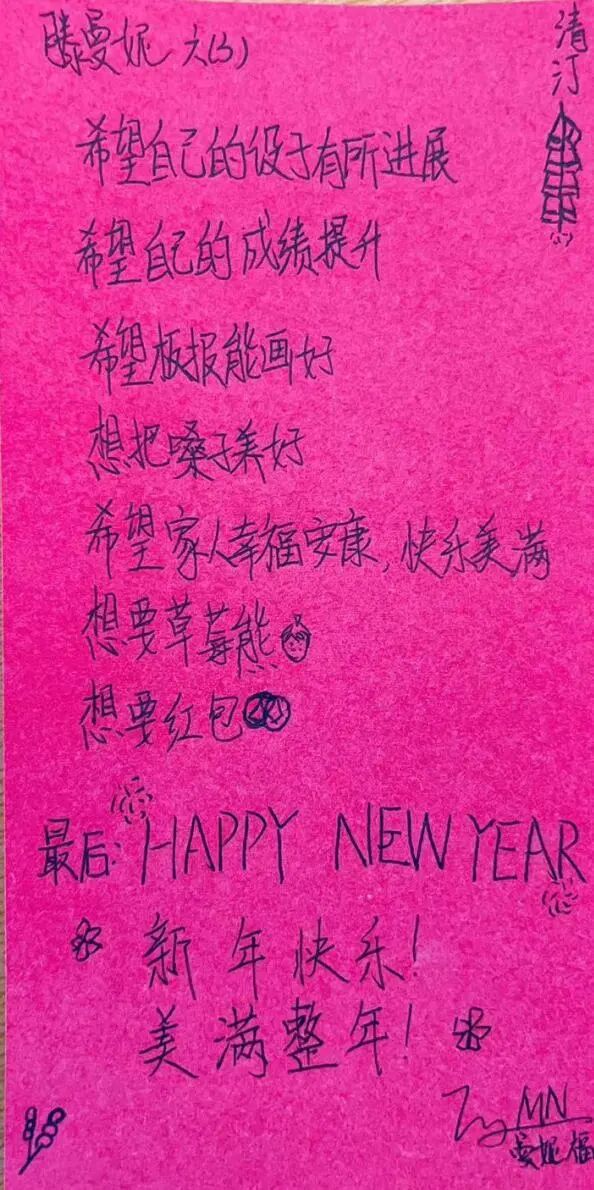 滕曼妮 六(3)
清汀
希望自己的役于有所进展
希望自己的成绩提升
希望板报能画好
想把嗓子美好
希望家人幸福安康,快乐美满
想要草莓熊
想要红包
最后: HAPPY NEW YEAR
新年快乐!
美满整年!
MN
曼妮福